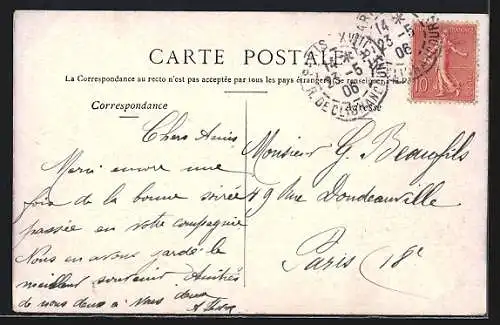 CARTE POSTALE
La Correspondance au recto n'est pas acceptée par tous les pays étrangers. Se renseigner
Correspondance
Adresse
PARIS XVIII
14 * 
23 - 5
06
R. DE CLIGNANCOURT
10
Chers Amis
Merci encore une
fois de la bonne soirée
passée en votre compagnie
Nous en avons gardé le
meilleur souvenir Amitiés
de nous deux à vous deux
Monsieur G. Beaufils
49 Rue Doudeauville
Paris 18e